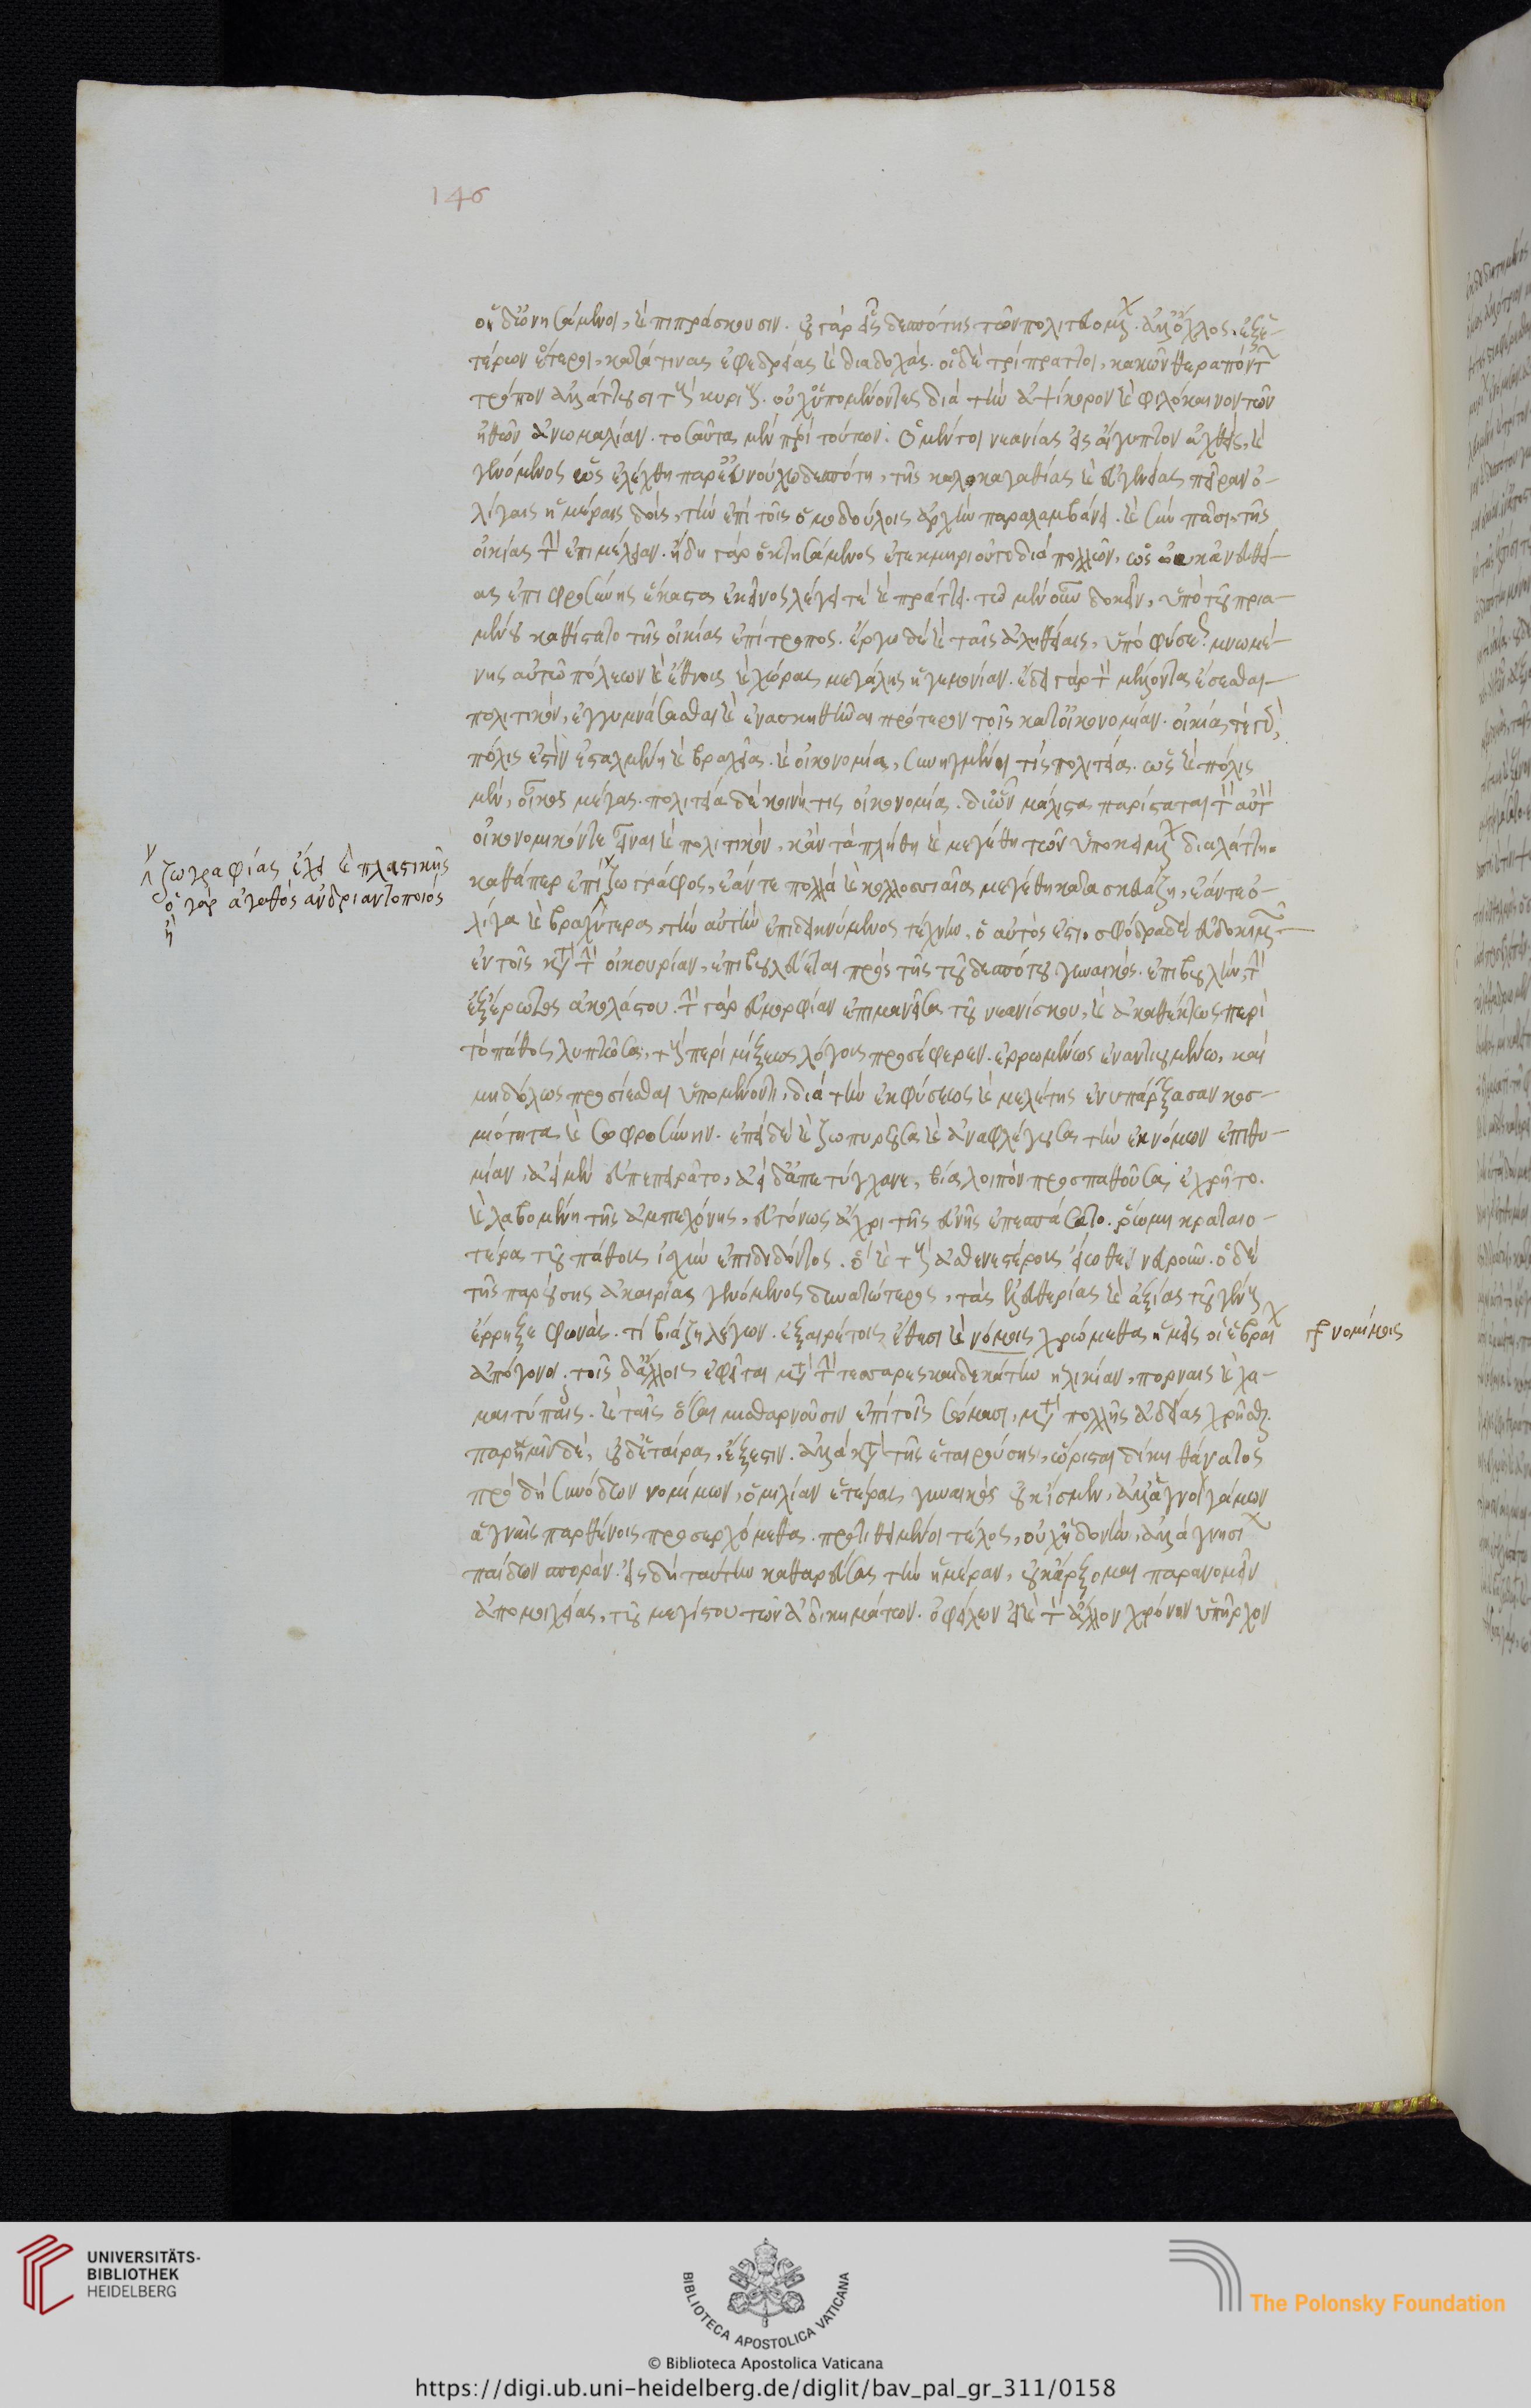 146
οἱ δ' ὠνησάμενοι, καὶ πιπράσκουσιν. οὐ γὰρ εἷς δεσπότης τῶν πολιτευομένων. ἀλλ' ὄχλος. ἐξ ἑ-
τέρων ἕτεροι, κατά τινας ἐφεδρείας καὶ διαδοχάς. οἱ δὲ τρίπρατοι, κακῶν θεραπόντων
τρόπον ἀλλάττουσι τοὺς κυρίους. οὐχ ὑπομένοντες διὰ τὴν ἁψίκορον καὶ φιλόκαινον τῶν
ἠθῶν ἀνωμαλίαν. τοσαῦτα μὲν περὶ τούτων. Ὁ μέντοι νεανίας εἰς αἴγυπτον ἀχθεὶς, καὶ
γενόμενος ὡς ἐλέχθη παρ' εὐνούχω δεσπότη, τῆς καλοκαγαθίας καὶ εὐγενείας πεῖραν ὀ-
λίγαις ἡμέραις δοὺς, τὴν ἐπὶ τοῖς ὁμοδούλοις ἀρχὴν παραλαμβάνει. καὶ σὺν πᾶσι, τῆς
οἰκίας τὴν ἐπιμέλειαν. ἤδη γὰρ ὁ κτησάμενος ἐτεκμηριοῦτο διὰ πολλῶν, ὡς οὐκ ἄνευ θεί-
ας ἐπιφροσύνης ἕκαστα ἐκεῖνος λέγει τε καὶ πράττει. τῶ μὲν οὖν δοκεῖν, ὑπὸ τοῦ πρια-
μένου καθίστατο τῆς οἰκίας ἐπίτροπος. ἔργω δὲ καὶ ταῖς ἀληθείαις, ὑπὸ φύσεως μνωμέ-
νης αὐτῶ πόλεων καὶ ἔθνους καὶ χώρας μεγάλης ἡγεμονίαν. ἔδει γὰρ τὸν μέλλοντα ἔσεσθαι
πολιτικὸν, ἐγγυμνάσασθαι καὶ ἐνασκηθῆναι πρότερον τοῖς κατ' οἰκονομίαν. οἰκία τε γὰρ
πόλις ἐστὶν ἐσταλμένη καὶ βραχεῖα. καὶ οἰκονομία, συνηγμένη τὶς πολιτεία. ὡς καὶ πόλις
μὲν, οἶκος μέγας. πολιτεία δὲ κοινή τις οἰκονομία. δι' ὧν μάλιστα παρίσταται τὸν αὐτὸν
οἰκονομικόν τε εἶναι καὶ πολιτικὸν, κἂν τὰ πλήθη καὶ μεγέθη τῶν ὑποκειμένων διαλάττη.
καθάπερ ἐπὶ ζωγράφος, ἐάν τε πολλὰ καὶ κολλοσσιαῖα μεγέθη κατασκευάζη, ἐάν τε ὀ-
λίγα καὶ βραχύτερα, τὴν αὐτὴν ἐπιδεικνύμενος τέχνην, ὁ αὐτός ἐστι. σφόδρα δὲ εὐδοκιμῶν
ἐν τοῖς κατὰ τὴν οἰκουρίαν, ἐπιβουλεύεται πρὸς τῆς τοῦ δεσπότου γυναικός. ἐπιβουλὴν, τὴν
ἐξ ἔρωτος ἀκολάστου. τὴν γὰρ εὐμορφίαν ἐπιμανεῖσα τοῦ νεανίσκου, καὶ ἀκαθέκτως περὶ
τὸ πάθος λυττῶσα, τοὺς περὶ μίξεως λόγους προσέφερεν. ἐρρωμένως ἐναντιουμένω, καὶ
μηδόλως προσίεσθαι ὑπομένοντι, διὰ τὴν ἐκ φύσεως καὶ μελέτης ἐνυπάρξασαν κοσ-
μιότητα καὶ σωφροσύνην. ἐπεὶ δὲ καὶ ζωπυροῦσα καὶ ἀναφλέγουσα τὴν ἐκνόμων ἐπιθυ-
μίαν, ἀεὶ μὲν ἀπεπειρᾶτο, ἀεὶ δ' ἀπετύγχανε, βία λοιπὸν προσπαθοῦσα ἐχρῆτο.
καὶ λαβομένη τῆς ἀμπεχόνης, εὐτόνως ἄχρι τῆς εὐνῆς ἐπεσπάσατο. ῥώμη κραταιο-
τέρα τοῦ πάθους ἰσχὺν ἐπιδιδόντος. ὃ καὶ τοὺς ἀσθενεστέρους εἴωθε νευροῦν. ὁ δὲ
τῆς παρούσης ἀκαιρίας γενόμενος δυνατώτερος, τὰς ἐλευθερίας καὶ ἀξίας τοῦ γένους
ἔρρηξε φωνάς. τί βιάζη λέγων. ἐξαιρέτοις ἔθεσι καὶ νόμοις χρώμεθα ἡμεῖς οἱ ἑβραίων
ἀπόγονοι. τοῖς δ' ἄλλοις ἐφεῖται μετὰ τὴν τεσσαρεσκαιδεκάτην ἡλικίαν, πόρναις καὶ χα-
μαιτύπαις. καὶ ταῖς ὅσαι μισθαρνοῦσιν ἐπὶ τοῖς σώμασι, μετὰ πολλῆς ἀδείας χρῆσθαι.
παρ' ἡμῖν δὲ, οὐδ' ἑταίρα, ἔξεστιν. ἀλλὰ κατὰ τῆς ἑταιρούσης, ὥρισται δίκη θάνατος
πρὸ δὴ συνόδων νομίμων, ὁμιλίαν ἑτέρας γυναικὸς οὐκ ἴσμεν, ἀλλ' ἁγνοὶ γάμων
ἁγναῖς παρθένοις προσερχόμεθα. προτιθέμενοι τέλος, οὐχ ἡδονὴν, ἀλλὰ γνησίων
παίδων σποράν. εἰς δὴ ταύτην καθαρεύσας τὴν ἡμέραν, οὐκ ἄρξομαι παρανομεῖν
ἀπὸ μοιχείας, τοῦ μεγίστου τῶν ἀδικημάτων. ὀφείλων εἰ καὶ τὸν ἄλλον χρόνον ὑπῆρχον
ζωγραφίας ἔχει καὶ πλαστικῆς
ὁ γὰρ ἀγαθὸς ἀνδριαντοποιός
ἢ
νομίμοις
UNIVERSITÄTS-
BIBLIOTHEK
HEIDELBERG
BIBLIOTECA APOSTOLICA VATICANA
The Polonsky Foundation
© Biblioteca Apostolica Vaticana
https://digi.ub.uni-heidelberg.de/diglit/bav_pal_gr_311/0158